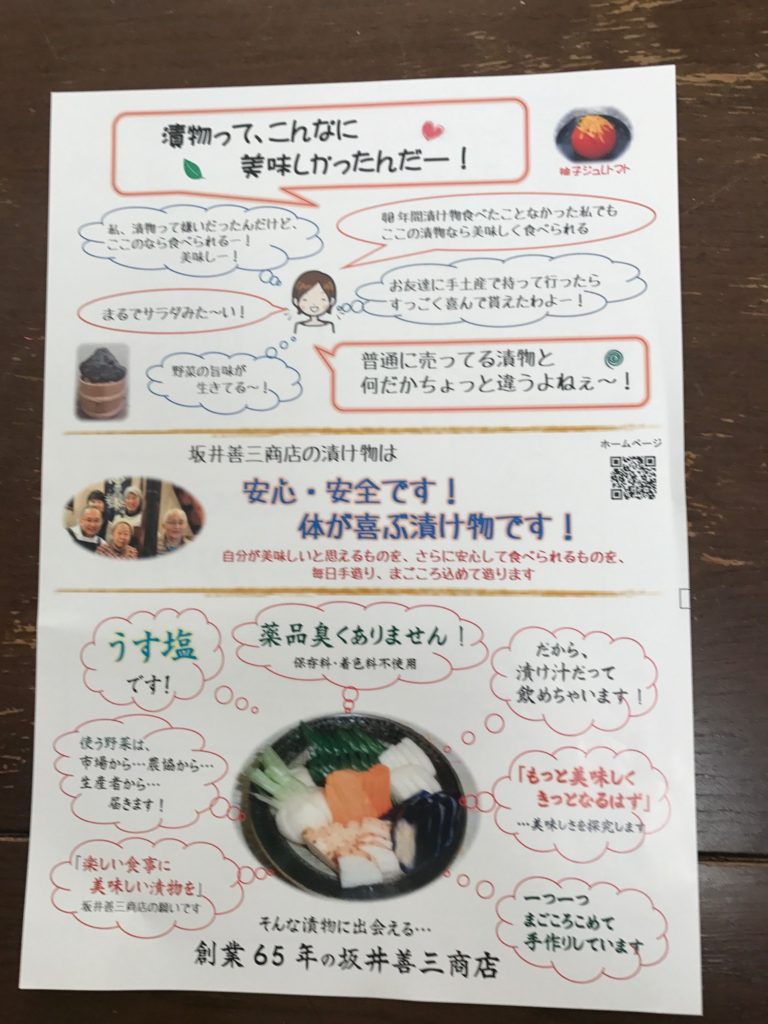 漬物って、こんなに
美味しかったんだー！
柚子ジュレトマト
私、漬物って嫌いだったんだけど、
ここのなら食べられるー！
美味しー！
40年間漬け物食べたことなかった私でも
ここの漬物なら美味しく食べられる
お友達に手土産で持って行ったら
すっごく喜んで貰えたわよー！
まるでサラダみた〜い！
野菜の旨味が
生きてる〜！
普通に売ってる漬物と
何だかちょっと違うよねぇ〜！
坂井善三商店の漬け物は
ホームページ
安心・安全です！
体が喜ぶ漬け物です！
自分が美味しいと思えるものを、さらに安心して食べられるものを、
毎日手造り、まごころ込めて造ります
うす塩
です！
薬品臭くありません！
保存料・着色料不使用
だから、
漬け汁だって
飲めちゃいます！
使う野菜は、
市場から…農協から…
生産者から…
届きます！
「もっと美味しく
きっとなるはず」
…美味しさを探究します
「楽しい食事に
美味しい漬物を」
坂井善三商店の願いです
一つ一つ
まごころこめて
手作りしています
そんな漬物に出会える…
創業65年の坂井善三商店